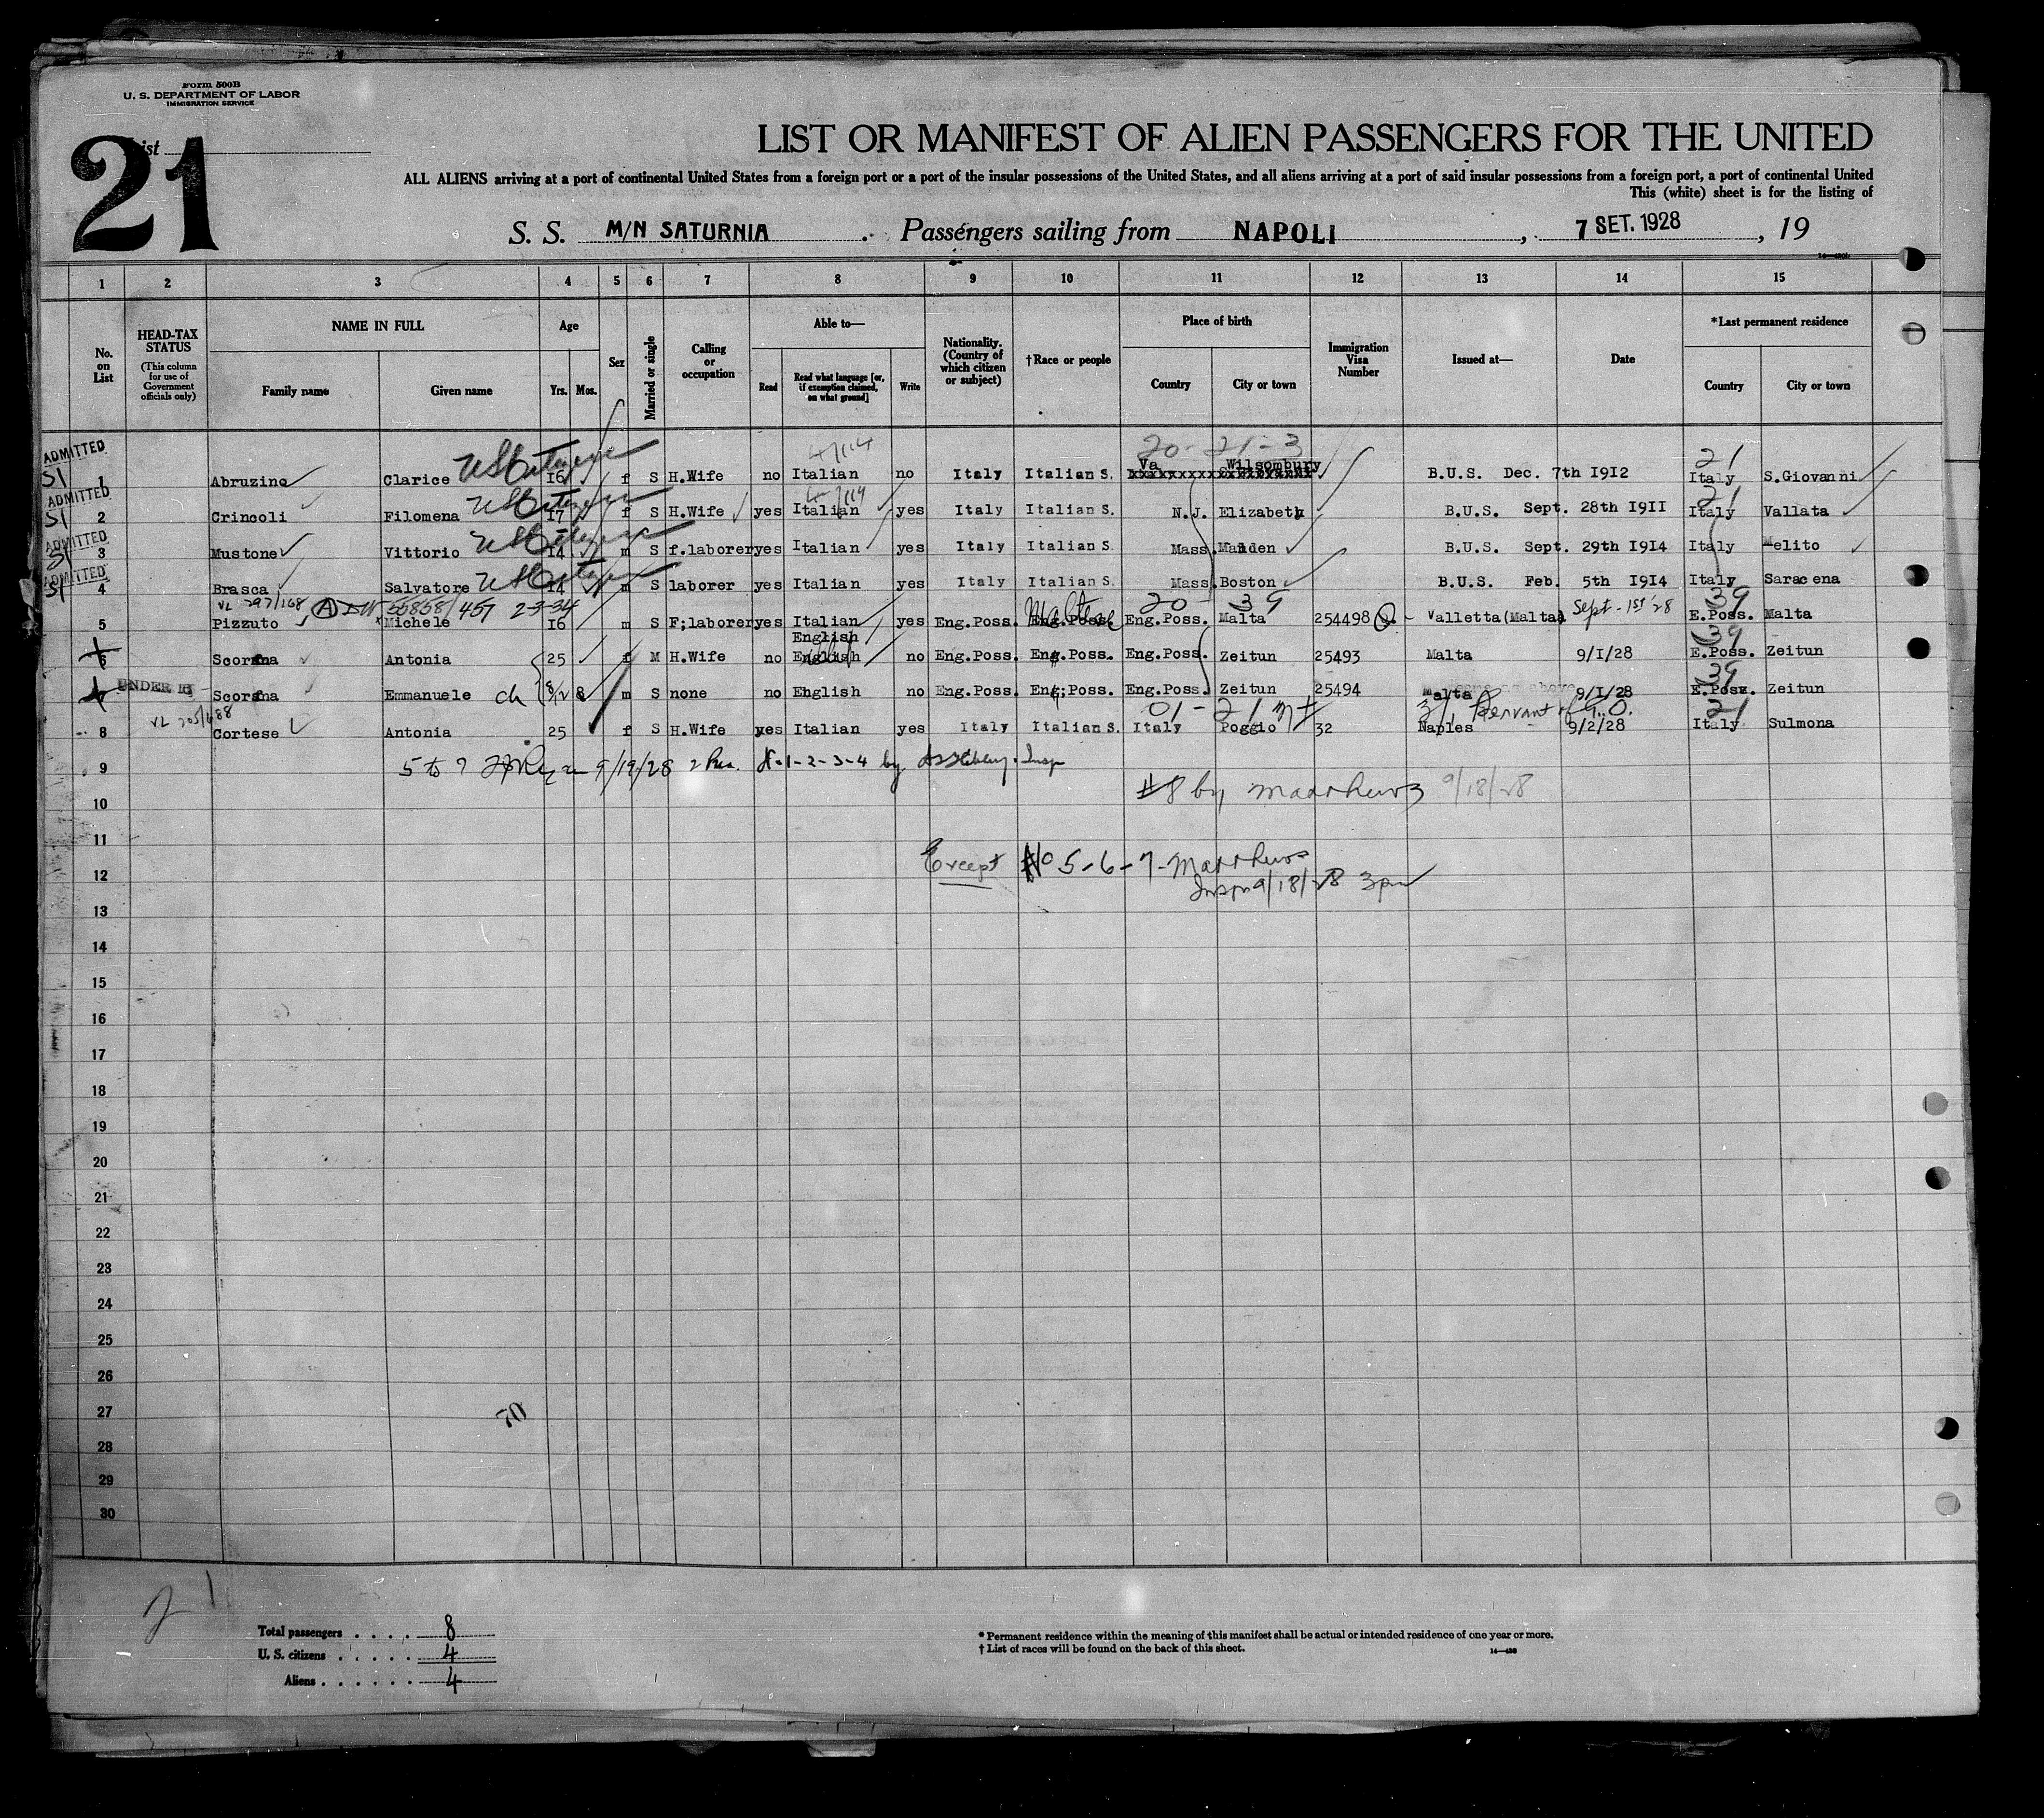 Form 500B
U. S. DEPARTMENT OF LABOR
IMMIGRATION SERVICE
21
List
LIST OR MANIFEST OF ALIEN PASSENGERS FOR THE UNITED
ALL ALIENS arriving at a port of continental United States from a foreign port or a port of the insular possessions of the United States, and all aliens arriving at a port of said insular possessions from a foreign port, a port of continental United
This (white) sheet is for the listing of
S. S. M/N SATURNIA. Passengers sailing from NAPOLI, 7 SET. 1928, 19
1 2 3 4 5 6 7 8 9 10 11 12 13 14 15
No. on List
HEAD-TAX STATUS (This column for use of Government officials only)
NAME IN FULL
Family name Given name
Age
Yrs. Mos.
Sex
Married or single
Calling or occupation
Able to—
Read Read what language [or, if exemption claimed, on what ground] Write
Nationality. (Country of which citizen or subject)
†Race or people
Place of birth
Country City or town
Immigration Visa Number
Issued at—
Date
*Last permanent residence
Country City or town
20-21-3 21
ADMITTED SI 1 Abruzino Clarice US Citizen 16 f S H.Wife no Italian no Italy Italian S. Va. Wilsombury B.U.S. Dec. 7th 1912 Italy S.Giovanni
ADMITTED SI 2 Crincoli Filomena US Citizen 17 f S H.Wife yes Italian yes Italy Italian S. N.J. Elizabeth B.U.S. Sept. 28th 1911 21 Italy Vallata
ADMITTED SI 3 Mustone Vittorio US Citizen 14 m S f.laborer yes Italian yes Italy Italian S. Mass. Malden B.U.S. Sept. 29th 1914 Italy Melito
ADMITTED SI 4 Brasca Salvatore US Citizen 14 m S laborer yes Italian yes Italy Italian S. Mass. Boston B.U.S. Feb. 5th 1914 Italy Saracena
VL 297/168 A 55858/457 2-3-34 Maltese 20- 39 39
5 Pizzuto Michele 16 m S F;laborer yes Italian English yes Eng.Poss. Eng.Poss. Eng.Poss. Malta 254498 Valletta(Malta) Sept-1st '28 E.Poss. Malta
6 Scorfna Antonia 25 f M H.Wife no English no Eng.Poss. Eng.Poss. Eng.Poss. Zeitun 25493 Malta 9/1/28 39 E.Poss. Zeitun
UNDER 16 7 Scorfna Emmanuele ch 8 m S none no English no Eng.Poss. Eng;Poss. Eng.Poss. Zeitun 25494 Malta 9/1/28 39 E.Poss. Zeitun
VL 205/688 01-21 Servant 21
8 Cortese Antonia 25 f S H.Wife yes Italian yes Italy Italian S. Italy Poggio 32 Naples 9/2/28 Italy Sulmona
9 5 to 7 9/19/28 1-2-3-4 by Insp
#8 by Matthews 9/18/28
10
11
Except No 5-6-7- Matthews
12 Inspr 9/18/28 3pm
13
14
15
16
17
18
19
20
21
22
23
24
25
26
27
70
28
29
30
21
Total passengers . . . . 8
U. S. citizens . . . . . 4
Aliens . . . . . . 4
* Permanent residence within the meaning of this manifest shall be actual or intended residence of one year or more.
† List of races will be found on the back of this sheet.